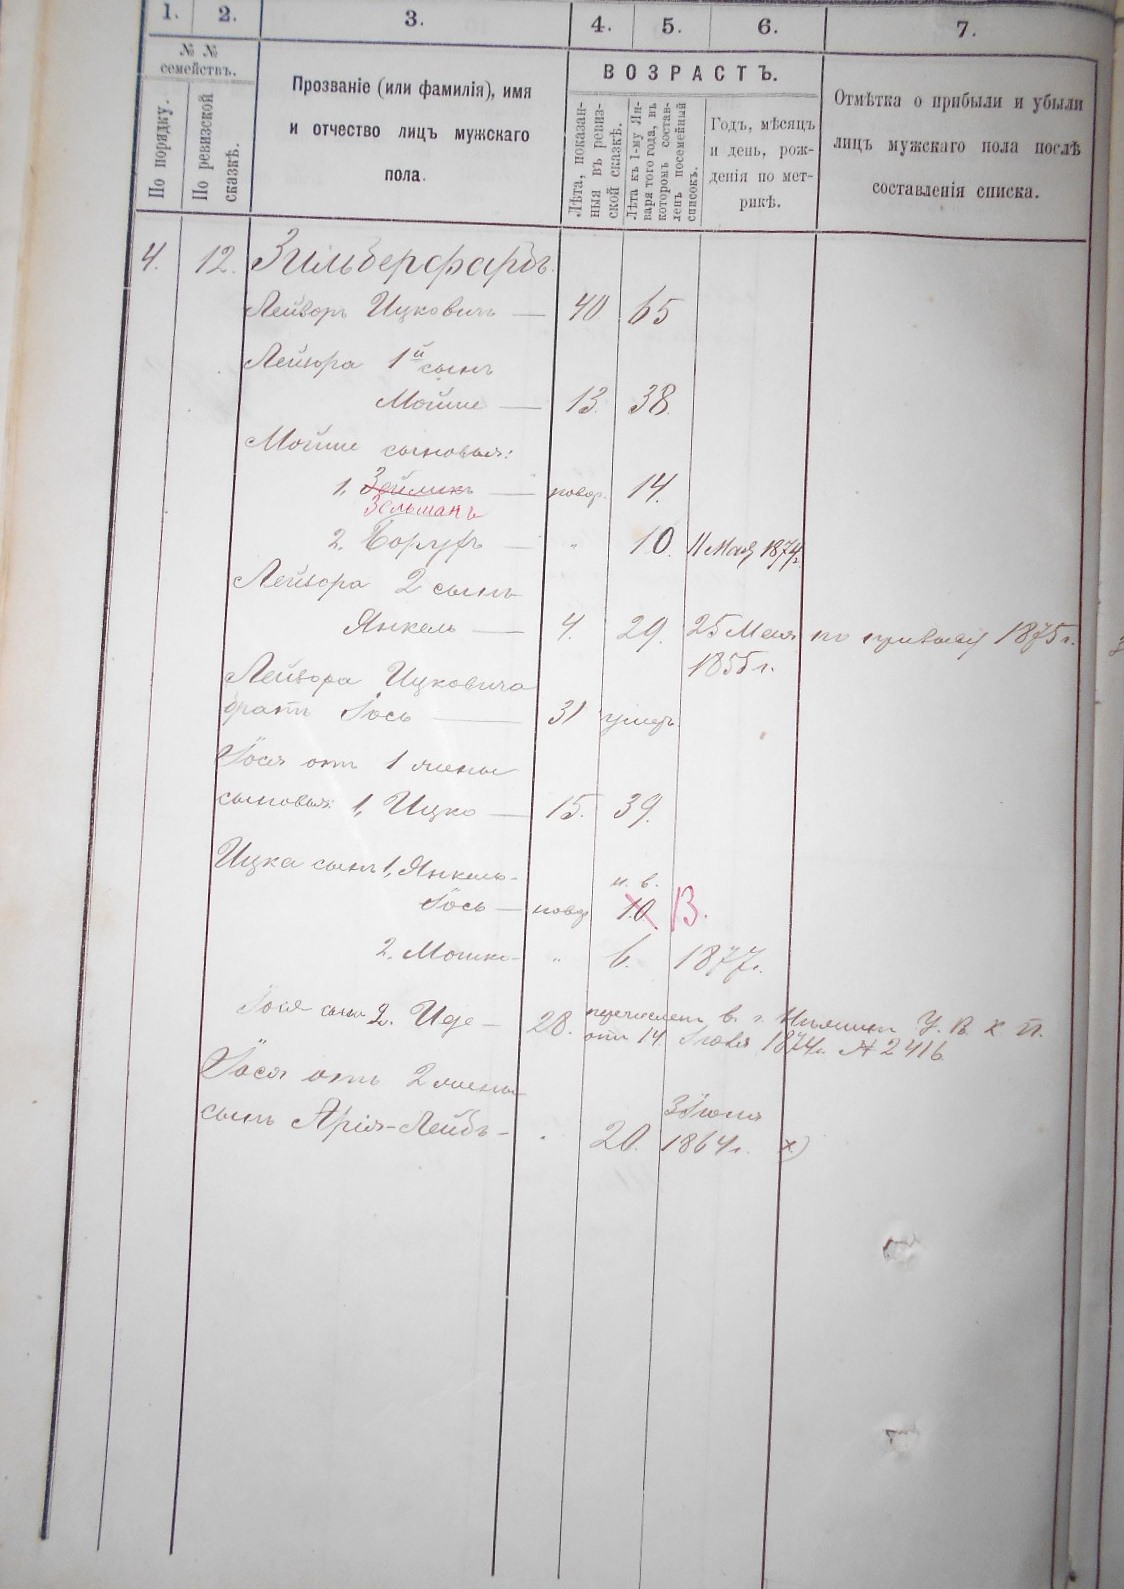 1. 2. 3. 4. 5. 6. 7.
№ №
семействъ.
По порядку.
По ревизской
сказкѣ.
Прозваніе (или фамилія), имя
и отчество лицъ мужскаго
пола.
ВОЗРАСТЪ.
Лѣта, показан-
ныя въ ревиз-
ской сказкѣ.
Лѣта къ 1-му Ян-
варя того года, въ
которомъ состав-
ленъ посемейный
списокъ.
Годъ, мѣсяцъ
и день, рож-
денія по мет-
рикѣ.
Отмѣтка о прибыли и убыли
лицъ мужскаго пола послѣ
составленія списка.
4. 12. Зильберфарбъ.
Лейзоръ Ицковичъ — 40 65
Лейзора 1й сынъ
Мошие — 13. 38.
Мошие сыновья:
1, Зейликъ — новор. 14.
Зельманъ
2. Борухъ — " 10. 11 Мая 1874г.
Лейзора 2 сынъ
Янкель — 4. 29. 25 Мая по призыву 1875 г.
1855 г.
Лейзора Ицковича
братъ Іось — 31 умеръ
Іося отъ 1 жены
сыновья: 1, Ицко — 15. 39.
Ицка сынъ 1, Янкель-
н. в.
Іось — новор 10 13.
2. Мошко - " 6. 1877 г.
Іося сынъ 2. Иде — 28. перечисленъ в. г. У. В. Х. П.
отъ 14 1874г. № 2416
Іося отъ 2 жены
3 Іюля
сынъ Арія-Лейбъ - . 20. 1864 г. х)